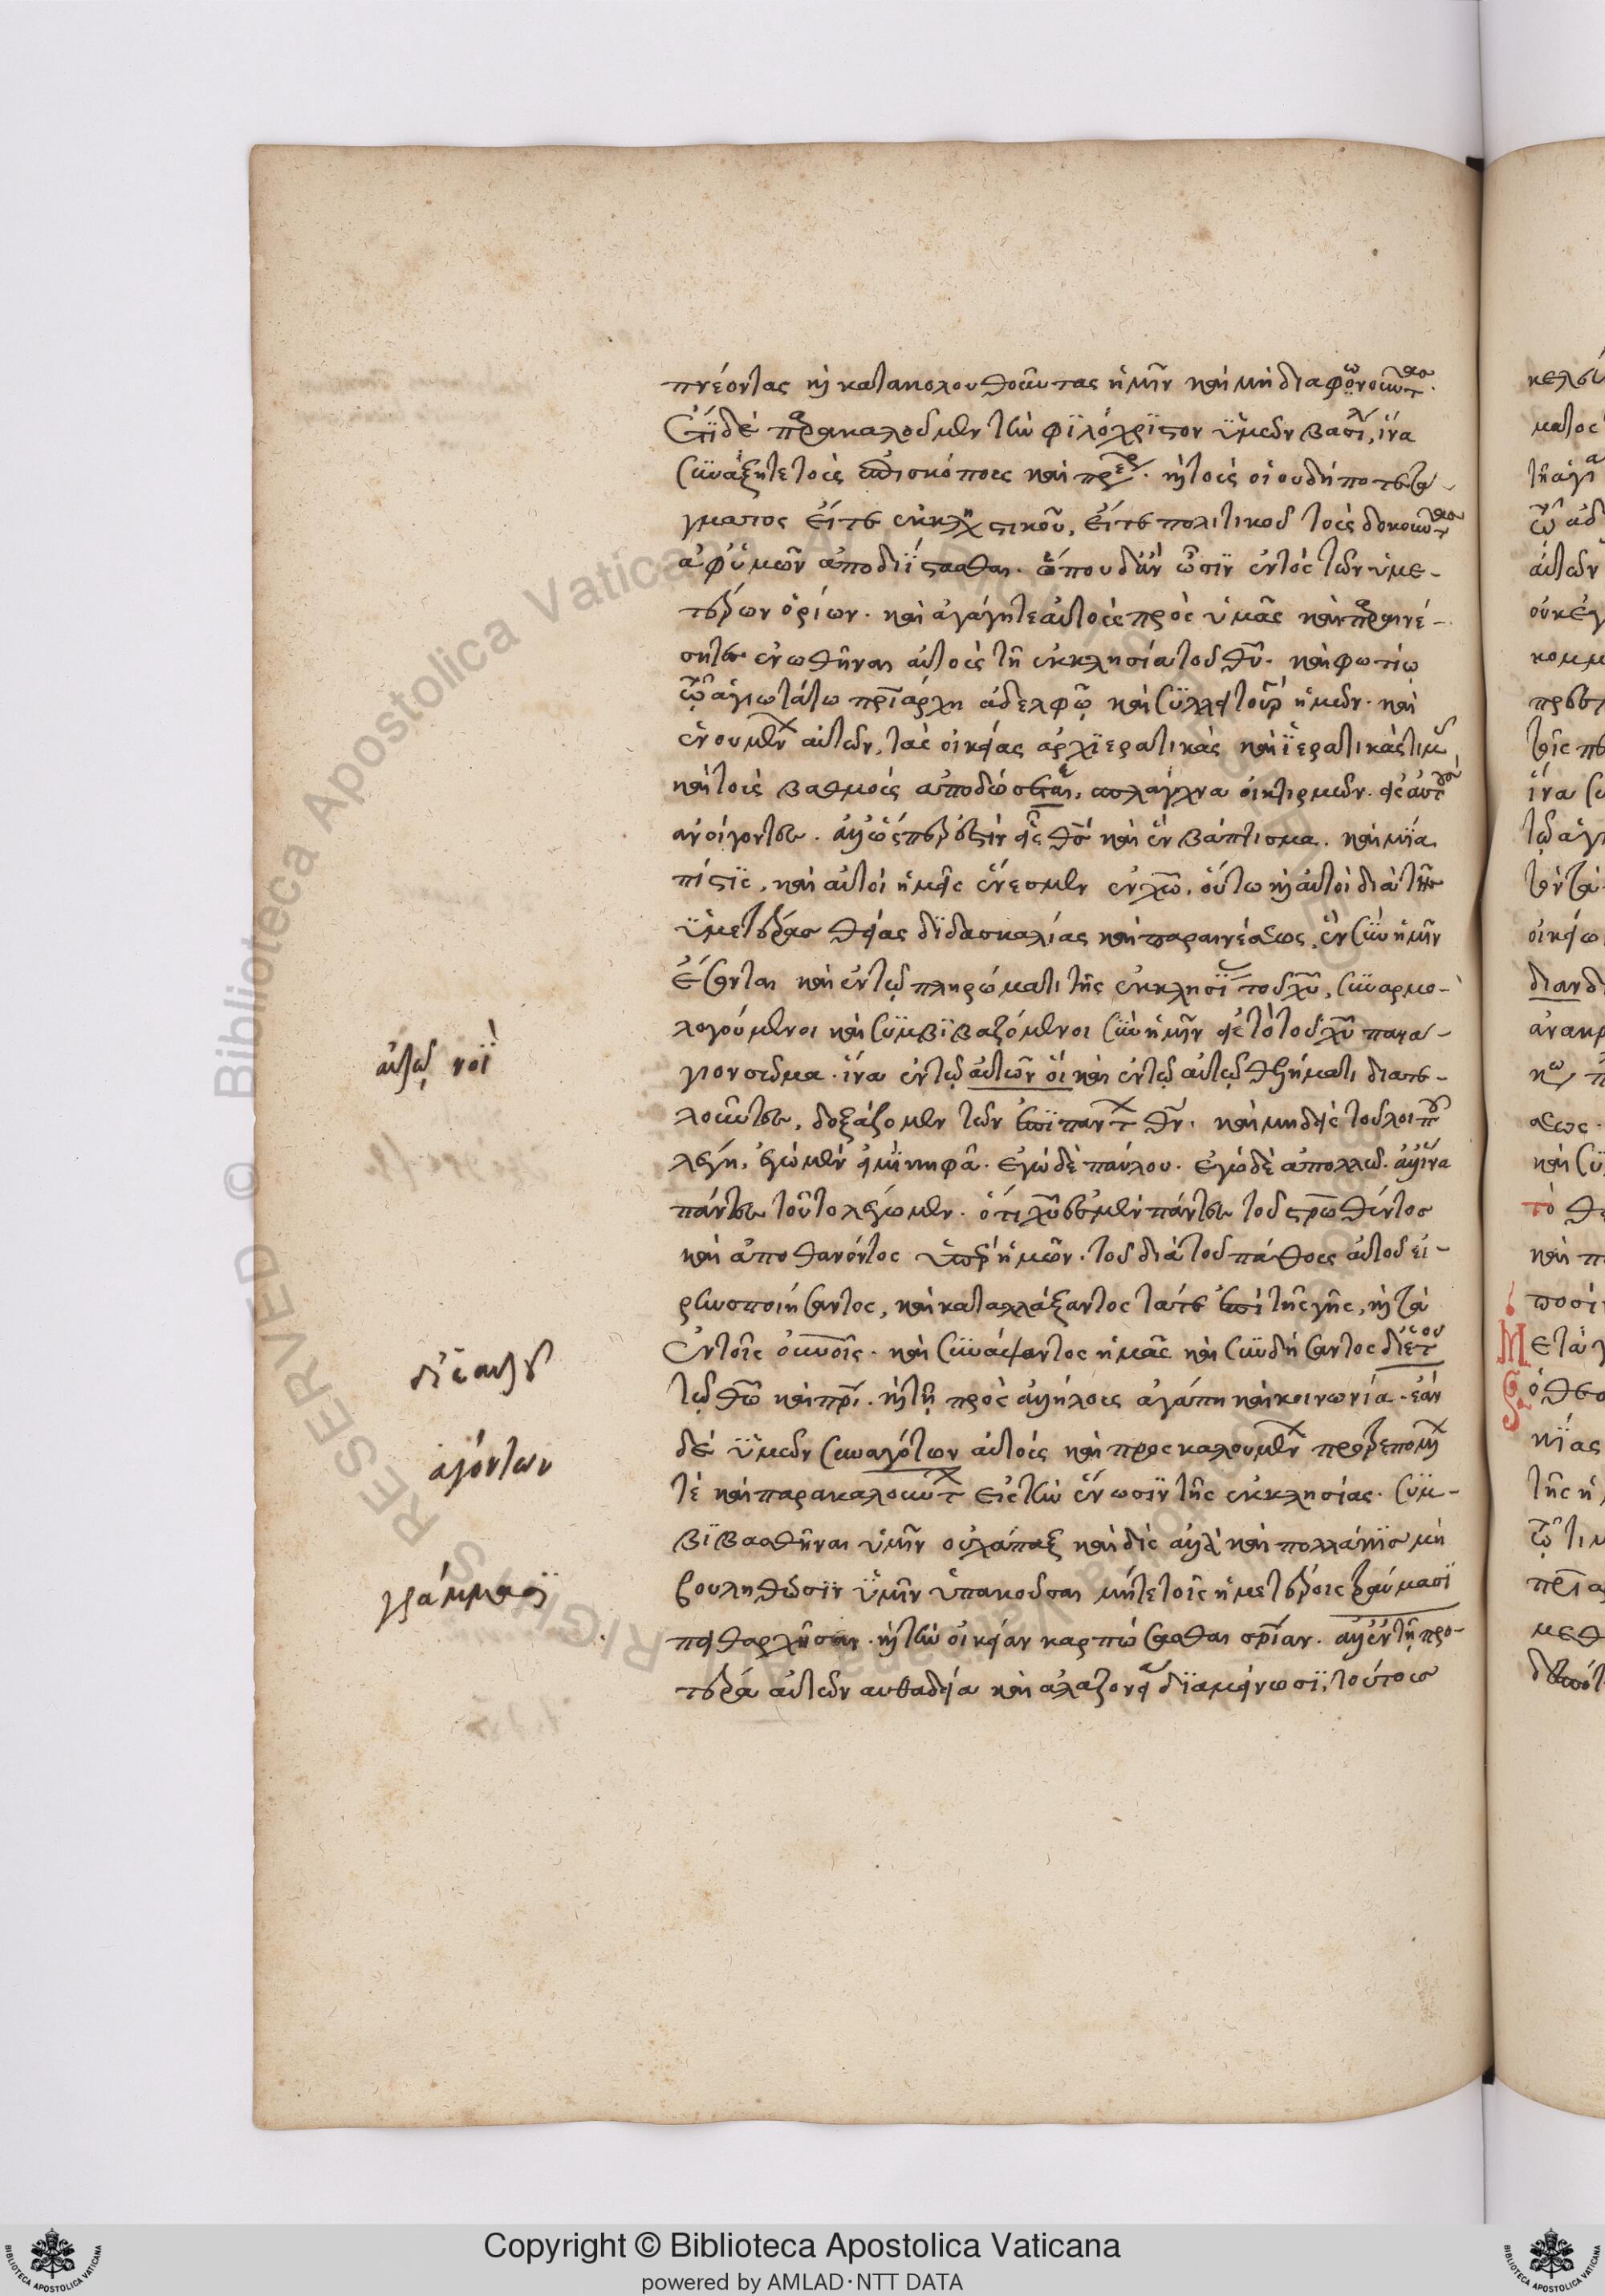 πνέοντας κ κατακολουθοῦντας ἡμῖν καὶ μὴ διαφωνοῦντας.
Ἔτι δὲ παρακαλοῦμεν τὴν φιλόχριστον ὑμῶν βασιλ, ἵνα
συνάξητε τοὺς ἐπισκόπους καὶ πρεσ. κ τοὺς οἱουδήποτε τά-
γματος εἴτε ἐκκλησιαστικοῦ, εἴτε πολιτικοῦ τοὺς δοκοῦντας
ἀφ' ὑμῶν ἀποδιίστασθαι. ὅπου δ' ἂν ὦσιν ἐντὸς τῶν ὑμε-
τέρων ὁρίων. καὶ ἀγάγητε αὐτοὺς πρὸς ὑμᾶς καὶ παραινέ-
σητε ἑνωθῆναι αὐτοὺς τῇ ἐκκλησίᾳ τοῦ θῦ. καὶ φωτίῳ
τῷ ἁγιωτάτῳ πριάρχῃ ἀδελφῷ καὶ συλλειτουργῷ ἡμῶν. καὶ
ἑνουμένων αὐτῶν, τὰς οἰκείας ἀρχιερατικὰς καὶ ἱερατικὰς τιμὰς
καὶ τοὺς βαθμοὺς ἀποδώσετε, σπλάγχνα οἰκτιρμῶν εἰς αὐτοὺς
ἀνοίγοντες. ἀλλ' ὥσπερ ἐστὶν εἷς θς καὶ ἓν βάπτισμα. καὶ μία
πίστις, καὶ αὐτοὶ ἡμεῖς ἕν ἐσμεν ἐν χῶ, οὕτω κ αὐτοὶ διὰ τῆς
ὑμετέρας θείας διδασκαλίας καὶ παραινέσεως, ἓν σὺν ἡμῖν
ἔσονται καὶ ἐν τῷ πληρώματι τῆς ἐκκλησί τοῦ χῦ, συναρμο-
λογούμενοι καὶ συμβιβαζόμενοι σὺν ἡμῖν εἰς τὸ τοῦ χῦ πανά-
γιον σῶμα. ἵνα ἐν τῷ αὐτῶν οἱ καὶ ἐν τῷ αὐτῷ θελήματι διατε-
λοῦντες, δοξάζομεν τὸν ἐπὶ πάντων θν. καὶ μηδεὶς τοῦ λοιποῦ
λέγῃ, ἐγὼ μέν εἰμι κηφᾶ. ἐγὼ δὲ παύλου. ἐγὼ δὲ ἀπολλῶ. ἀλλ' ἵνα
πάντες τοῦτο λέγωμεν. ὅτι χῦ ἐσμὲν πάντες τοῦ σρωθέντος
καὶ ἀποθανόντος ὑπὲρ ἡμῶν. τοῦ διὰ τοῦ πάθους αὐτοῦ εἰ-
ρηνοποιήσαντος, καὶ καταλλάξαντος τά τε ἐπὶ τῆς γῆς, κ τὰ
ἐν τοῖς οὐνοῖς. καὶ συνάψαντος ἡμᾶς καὶ συνδήσαντος
τῷ θῶ καὶ πρί. κ τῇ πρὸς ἀλλήλους ἀγάπῃ καὶ κοινωνίᾳ. ἐὰν
δὲ ὑμῶν συναγότων αὐτοὺς καὶ προσκαλουμένων προτρεπομένων
τὲ καὶ παρακαλούντων εἰς τὴν ἕνωσιν τῆς ἐκκλησίας. συμ-
βιβασθῆναι ὑμῖν οὐχ ἅπαξ καὶ δὶς ἀλλὰ καὶ πολλάκις μὴ
βουληθῶσιν ὑμῖν ὑπακοῦσαι μήτε τοῖς ἡμετέροις γράμμασι
πειθαρχῆσαι. κ τὴν οἰκείαν καρπώσασθαι σρίαν. ἀλλ' ἐν τῇ προ-
τέρᾳ αὐτῶν αὐθαδείᾳ καὶ ἀλαζονείᾳ διαμείνωσι, τούτους
αὐτῷ νοῒ
δι' ἑαυτοῦ
αγόντων
γράμμασϊ
Copyright © Biblioteca Apostolica Vaticana
powered by AMLAD·NTT DATA